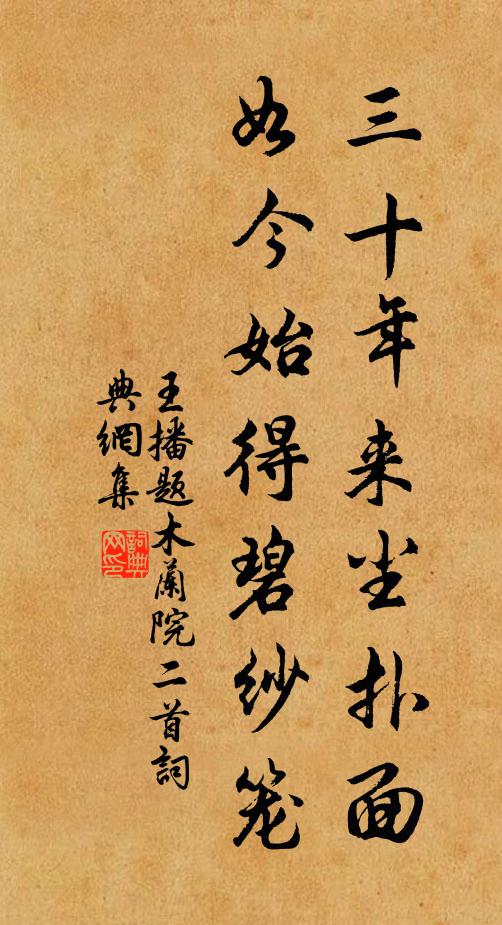 三十年来尘扑面
如今始得碧纱笼
王播题木蘭院二首詞
典網集
詞典网印